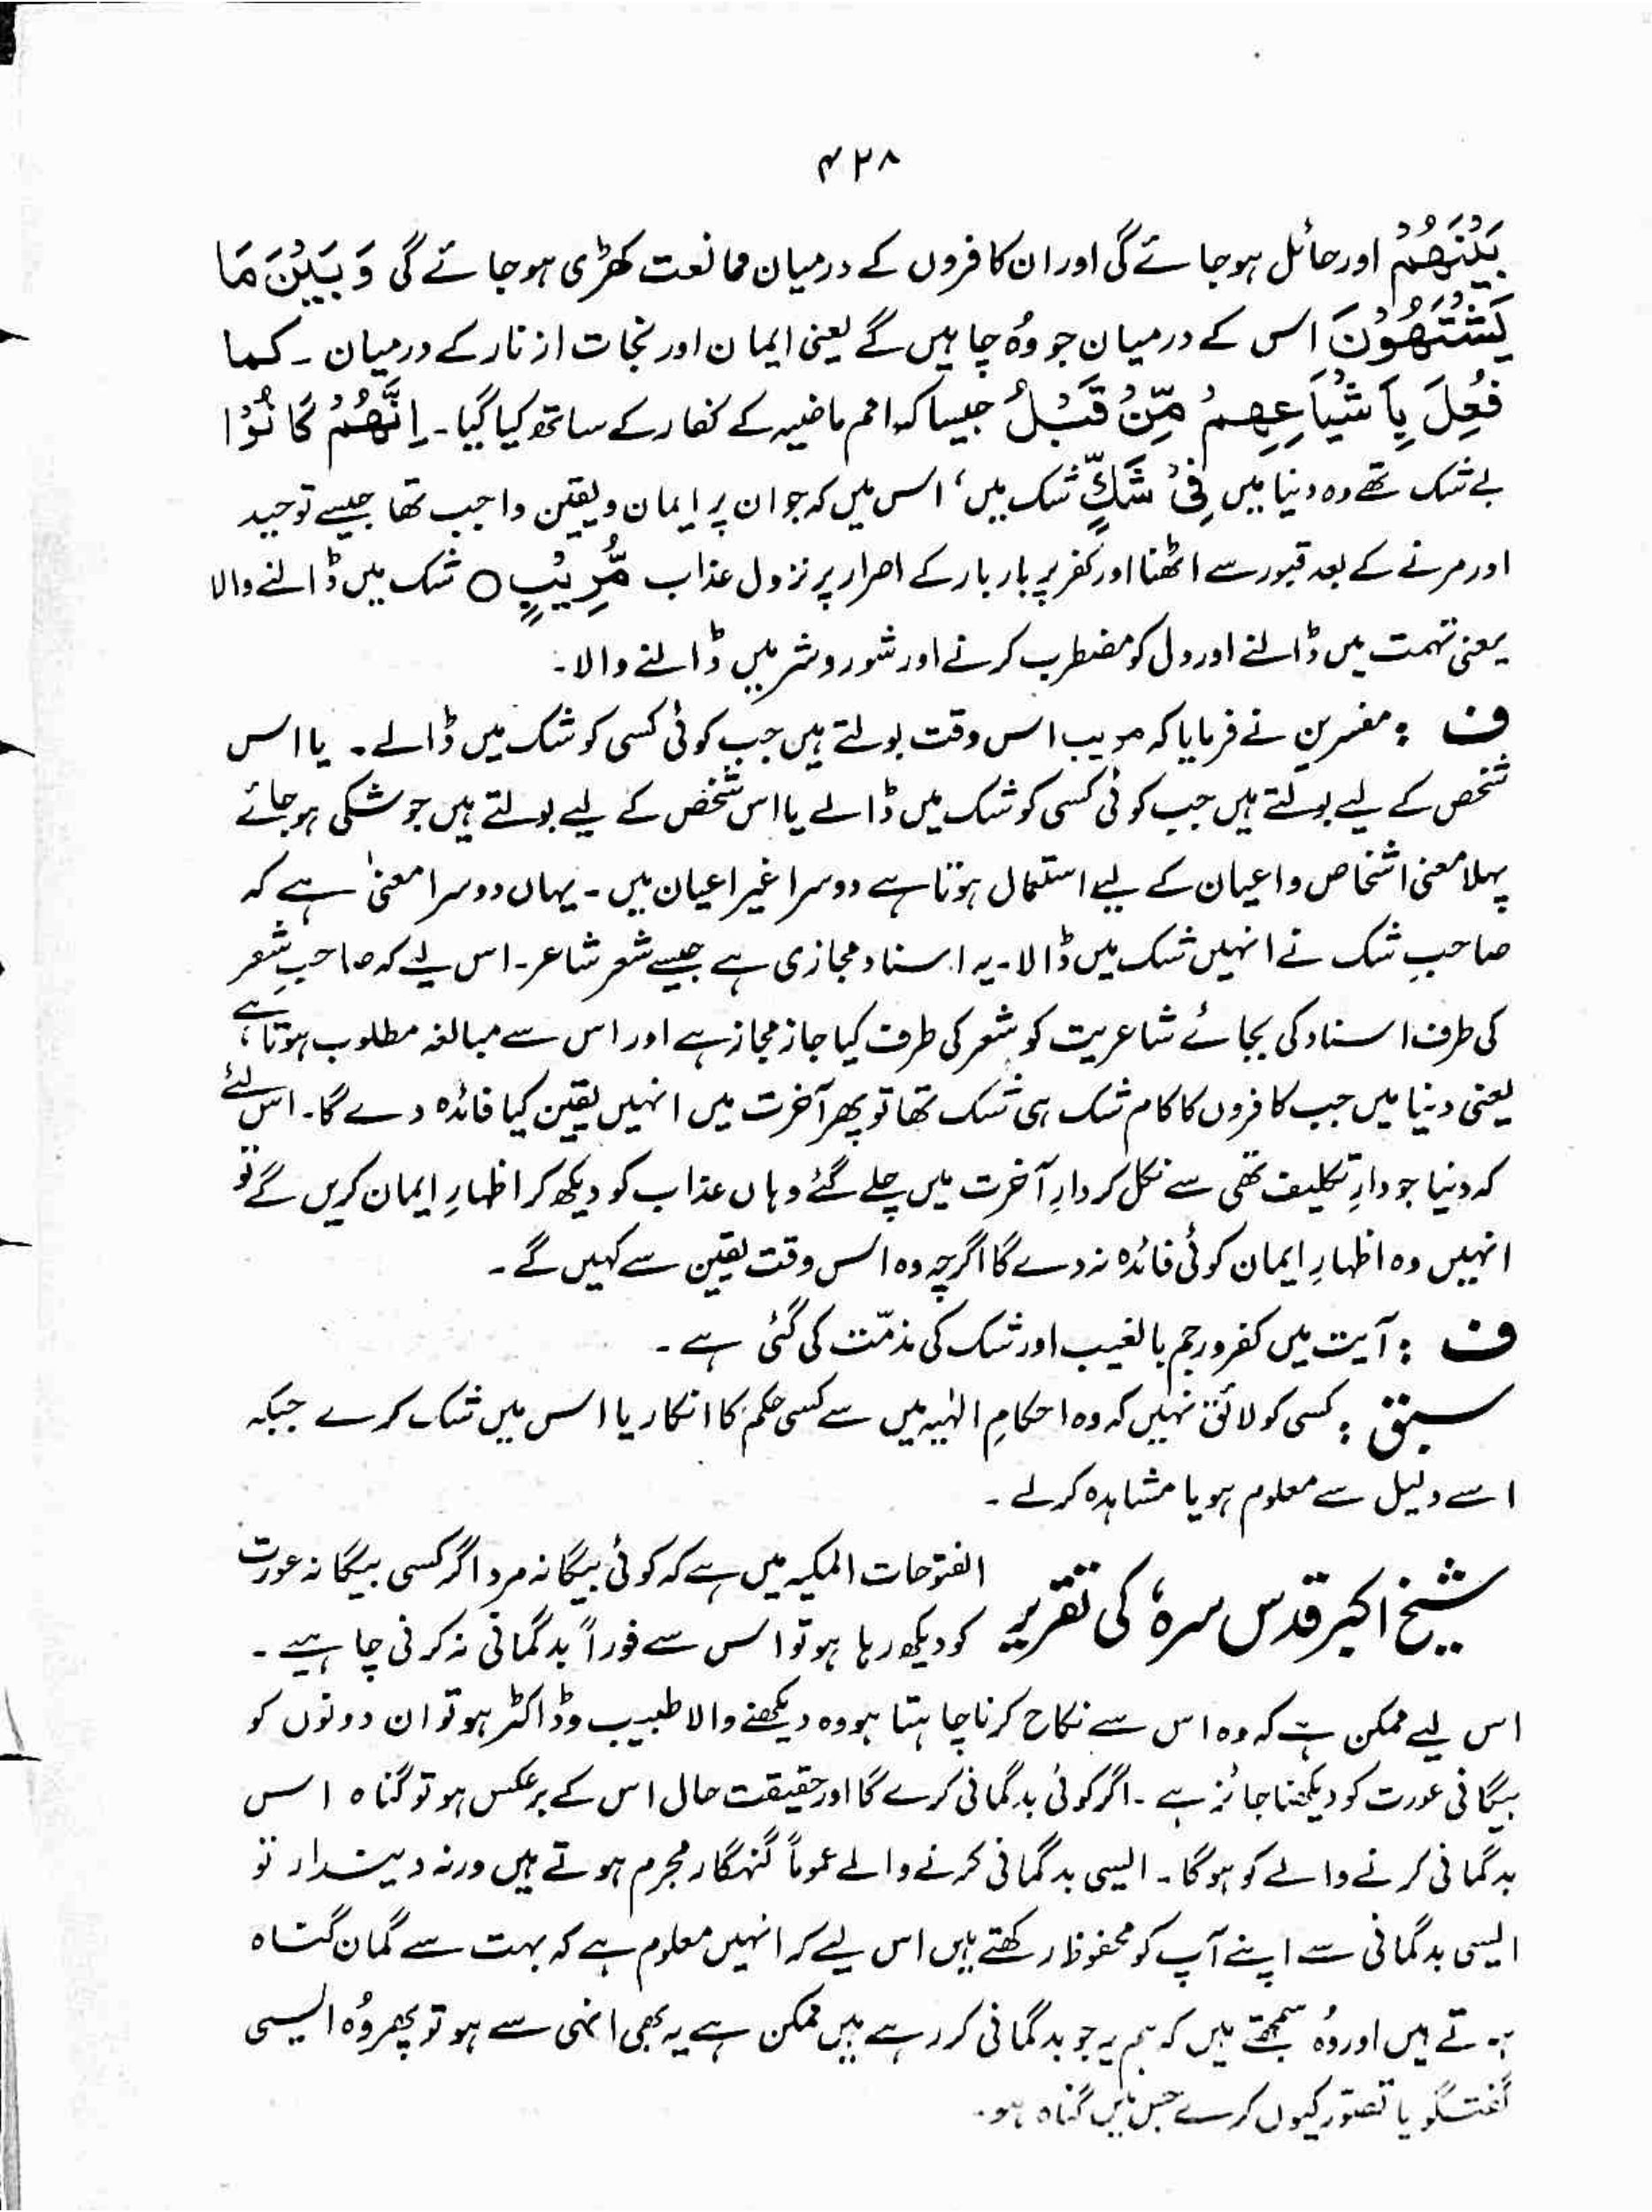 ۴۲۸
بَيْنَهُمْ اور حائل ہو جائے گی اور ان کافروں کے درمیان ممانعت کھڑی ہو جائے گی وَ بَيْنَ مَا
يَشْتَهُوْنَ اس کے درمیان جو وُہ چاہیں گے یعنی ایمان اور نجات از نار کے درمیان ۔ کما
فُعِلَ بِاَشْيَاعِهِمْ مِّنْ قَبْلُ جیسا کہ امم ماضیہ کے کفار کے ساتھ کیا گیا ۔ اِنَّهُمْ كَانُوْا
بے شک تھے وہ دنیا میں فِیْ شَكٍّ شک میں، اس میں کہ جو ان پر ایمان و یقین واجب تھا جیسے توحید
اور مرنے کے بعد قبور سے اٹھنا اور کفر پر بار بار کے اصرار پر نزول عذاب مُّرِيْبٍ ○ شک میں ڈالنے والا
یعنی تہمت میں ڈالنے اور دل کو مضطرب کرنے اور شور و شر میں ڈالنے والا ۔
ف : مفسرین نے فرمایا کہ مریب اس وقت بولتے ہیں جب کوئی کسی کو شک میں ڈالے ۔ یا اس
شخص کے لیے بولتے ہیں جب کوئی کسی کو شک میں ڈالے یا اس شخص کے لیے بولتے ہیں جو شکی ہو جائے
پہلا معنی اشخاص و اعیان کے لیے استعمال ہوتا ہے دوسرا غیر اعیان میں ۔ یہاں دوسرا معنیٰ ہے کہ
صاحبِ شک نے انہیں شک میں ڈالا ۔ یہ اسناد مجازی ہے جیسے شعر شاعر ۔ اس لیے کہ صاحبِ شعر
کی طرف اسناد کی بجائے شاعریت کو شعر کی طرف کیا جاز مجاز ہے اور اس سے مبالغہ مطلوب ہوتا ہے ،
یعنی دنیا میں جب کافروں کا کام شک ہی شک تھا تو پھر آخرت میں انہیں یقین کیا فائدہ دے گا ۔ اس لئے
کہ دنیا جو دارِ تکلیف تھی سے نکل کر دارِ آخرت میں چلے گئے وہاں عذاب کو دیکھ کر اظہارِ ایمان کریں گے تو
انہیں وہ اظہارِ ایمان کوئی فائدہ نہ دے گا اگرچہ وہ اس وقت یقین سے کہیں گے ۔
ف : آیت میں کفر و رجم بالغیب اور شک کی مذمّت کی گئی ہے ۔
سبق : کسی کو لائق نہیں کہ وہ احکامِ الٰہیہ میں سے کسی حکم کا انکار یا اس میں شک کرے جبکہ
اسے دلیل سے معلوم ہو یا مشاہدہ کرلے ۔
شیخ اکبر قدس سرہٗ کی تقریر الفتوحات المکیہ میں ہے کہ کوئی بیگانہ مرد اگر کسی بیگانہ عورت
کو دیکھ رہا ہو تو اس سے فوراً بدگمانی نہ کرنی چاہیے ۔
اس لیے ممکن ہے کہ وہ اس سے نکاح کرنا چاہتا ہو وہ دیکھنے والا طبیب و ڈاکٹر ہو تو ان دونوں کو
بیگانی عورت کو دیکھنا جائز ہے ۔ اگر کوئی بدگمانی کرے گا اور حقیقت حال اس کے برعکس ہو تو گناہ اس
بدگمانی کرنے والے کو ہوگا ۔ ایسی بدگمانی کرنے والے عموماً گنہگار مجرم ہوتے ہیں ورنہ دیندار تو
ایسی بدگمانی سے اپنے آپ کو محفوظ رکھتے ہیں اس لیے کہ انہیں معلوم ہے کہ بہت سے گمان گناہ
ہوتے ہیں اور وُہ سمجھتے ہیں کہ ہم یہ جو بدگمانی کر رہے ہیں ممکن ہے یہ بھی انہی سے ہو تو پھر وُہ ایسی
گفتگو یا تصوّر کیوں کرے جس میں گناہ ہو ۔